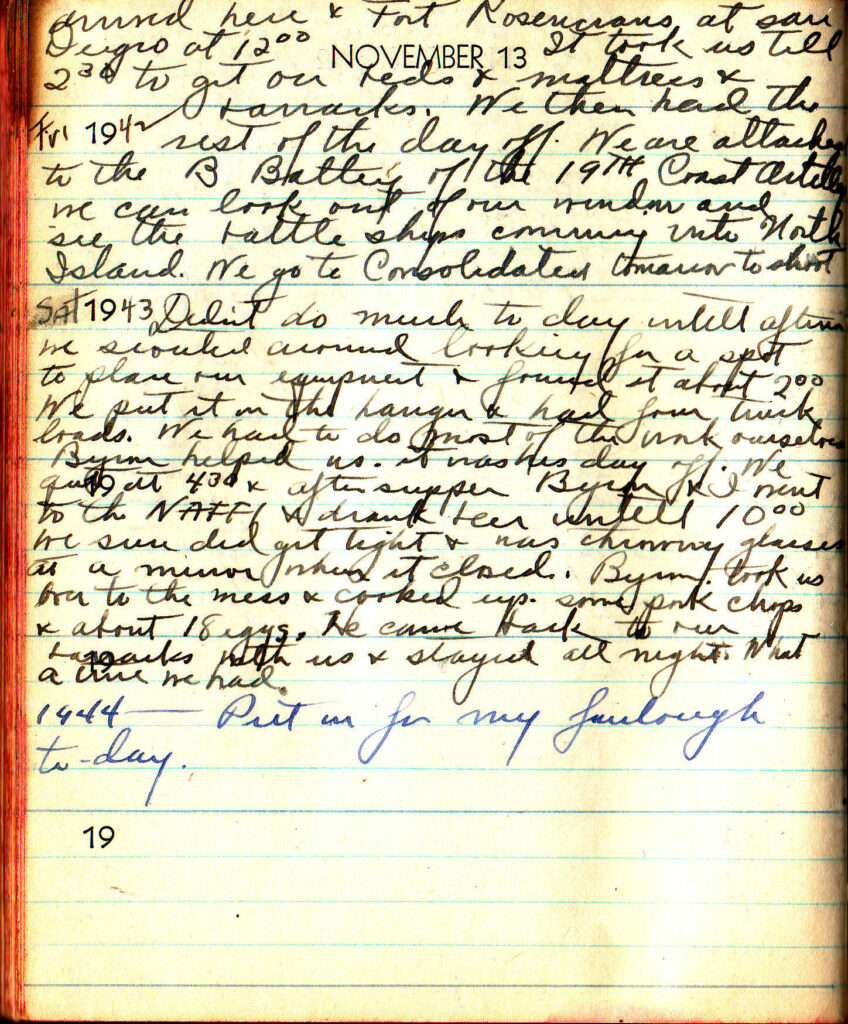 arrived here & Fort Rosencrans at san
Deigo at 12⁰⁰ It took us till
NOVEMBER 13
2³⁰ to get our beds & mattress &
barracks. We then had the
Fri 1942 rest of the day off. We are attached
to the B Battery of the 19TH Coast Artillery
we can look out of our window and
see the battle ships comming into North
Island. We go to Consolidated tomarrow to shoot
Sat 1943 Didn't do much to day untill aftern
we scouted around looking for a spot
to place our equipment & found it about 2⁰⁰
We put it in the hanger & had four truck
loads. We had to do most of the work ourselves
Byrm helped us. it was his day off. We
19
quit at 4³⁰ & after supper Byrm & I went
to the NAFFI & drank beer untill 10⁰⁰
we sure did get tight & was throwing glasses
at a mirror when it closed. Byrm. took us
over to the mess & cooked up some pork chops
& about 18 eggs. He came back to our
19
barracks with us & stayed all night. What
a time we had.
1944 — Put in for my furlough
to-day.
19